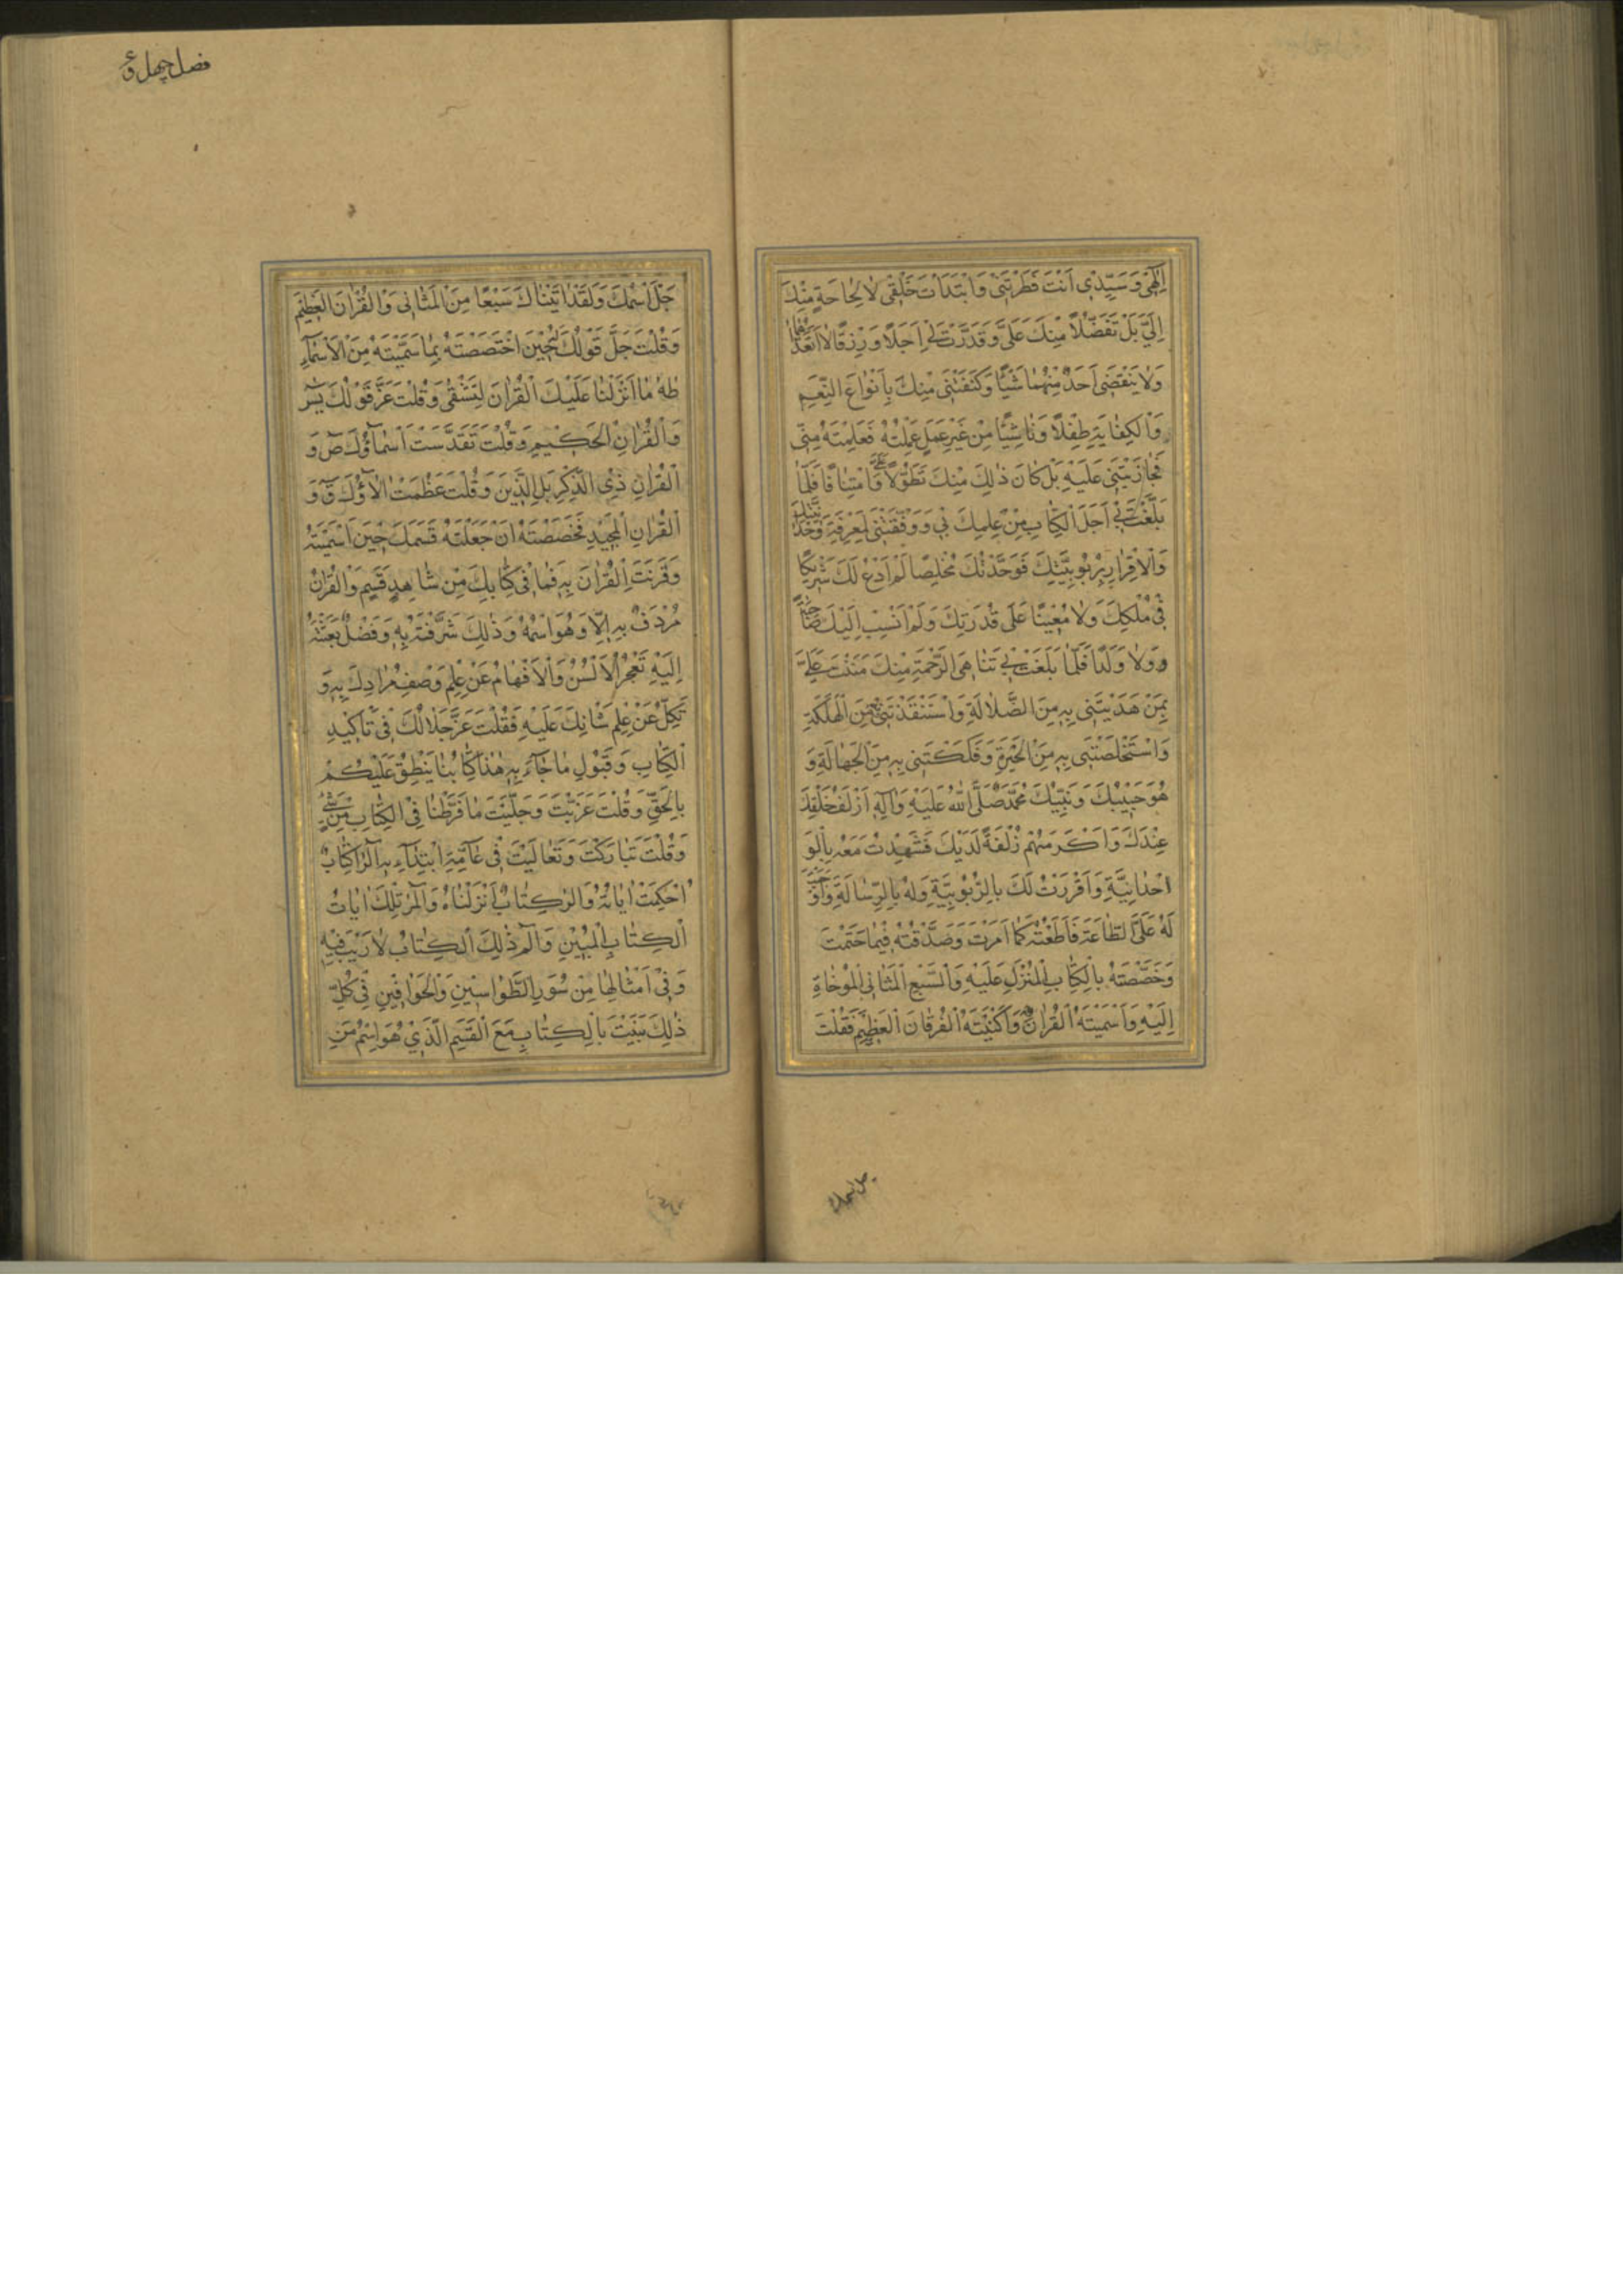 اِلٰهِىْ وَسَيِّدِىْ اَنْتَ فَطَرْتَنِىْ وَابْتَدَاْتَ خَلْقِىْ لَا لِحَاجَةٍ مِنْكَ
اِلَىَّ بَلْ تَفَضُّلًا مِنْكَ عَلَىَّ وَقَدَّرْتَ لِىْ اَجَلًا وَرِزْقًا لَا اَتَعَدَّاهُمَا
وَلَا يَنْقُصُنِىْ اَحَدٌ مِنْهُمَا شَيْئًا وَكَنَفْتَنِىْ مِنْكَ بِاَنْوَاعِ النِّعَمِ
وَالْكِفَايَةِ طِفْلًا وَنَاشِئًا مِنْ غَيْرِ عَمَلٍ عَمِلْتُهُ فَعَلِمْتَهُ مِنِّىْ
فَجَازَيْتَنِىْ عَلَيْهِ بَلْ كَانَ ذٰلِكَ مِنْكَ تَطَوُّلًا عَلَىَّ وَامْتِنَانًا فَلَمَّا
بَلَّغْتَ بِىْ اَجَلَ الْكِتَابِ مِنْ عِلْمِكَ بِىْ وَوَفَّقْتَنِىْ لِمَعْرِفَةِ وَحْدَانِيَّتِكَ
وَالْاِقْرَارِ بِرُبُوْبِيَّتِكَ فَوَحَّدْتُكَ مُخْلِصًا لَمْ اَدْعُ لَكَ شَرِيْكًا
فِىْ مُلْكِكَ وَلَا مُعِيْنًا عَلٰى قُدْرَتِكَ وَلَمْ اَنْسِبْ اِلَيْكَ صَاحِبَةً
وَلَا وَلَدًا فَلَمَّا بَلَغْتَ بِىْ تَنَاهِىَ الرَّحْمَةِ مِنْكَ مَنَنْتَ عَلَىَّ
بِمَنْ هَدَيْتَنِىْ بِهِ مِنَ الضَّلَالَةِ وَاسْتَنْقَذْتَنِىْ بِهِ مِنَ الْهَلَكَةِ
وَاسْتَخْلَصْتَنِىْ بِهِ مِنَ الْحَيْرَةِ وَفَكَكْتَنِىْ بِهِ مِنَ الْجَهَالَةِ وَ
هُوَ حَبِيْبُكَ وَنَبِيُّكَ مُحَمَّدٌ صَلَّى اللهُ عَلَيْهِ وَاٰلِهِ اَزْلَفُ خَلْقِكَ
عِنْدَكَ وَاَكْرَمُهُمْ زُلْفَةً لَدَيْكَ فَشَهِدْتُ مَعَهُ بِالْوَ
احْدَانِيَّةِ وَاَقْرَرْتُ لَكَ بِالرُّبُوْبِيَّةِ وَلَهُ بِالرِّسَالَةِ وَاَوْجَبْتَ
لَهُ عَلَىَّ الطَّاعَةَ فَاَطَعْتُهُ كَمَا اَمَرْتَ وَصَدَّقْتُهُ فِيْمَا حَتَمْتَ
وَخَصَّصْتَهُ بِالْكِتَابِ الْمُنْزَلِ عَلَيْهِ وَالسَّبْعِ الْمَثَانِى الْمُوْحَاةِ
اِلَيْهِ وَاَسْمَيْتَهُ الْقُرْاٰنَ وَاَكْنَيْتَهُ الْفُرْقَانَ الْعَظِيْمَ فَقُلْتَ
جل اسمك
فصل چهل و
جَلَّ اسْمُكَ وَلَقَدْ اٰتَيْنَاكَ سَبْعًا مِنَ الْمَثَانِىْ وَالْقُرْاٰنَ الْعَظِيْمَ
وَقُلْتَ جَلَّ قَوْلُكَ حِيْنَ اخْتَصَصْتَهُ بِمَا سَمَّيْتَهُ مِنَ الْاَسْمَآءِ
طٰهٰ مَا اَنْزَلْنَا عَلَيْكَ الْقُرْاٰنَ لِتَشْقٰى وَقُلْتَ عَزَّ قَوْلُكَ يٰسٓ
وَالْقُرْاٰنِ الْحَكِيْمِ وَقُلْتَ تَقَدَّسَتْ اَسْمَآؤُكَ صٓ وَ
الْقُرْاٰنِ ذِى الذِّكْرِ بَلِ الَّذِيْنَ وَقُلْتَ عَظُمَتْ اٰلَآؤُكَ قٓ وَ
الْقُرْاٰنِ الْمَجِيْدِ فَخَصَصْتَهُ اَنْ جَعَلْتَهُ قَسَمَكَ حِيْنَ اَسْمَيْتَهُ
وَقَرَنْتَ الْقُرْاٰنَ بِهِ فَمَا فِىْ كِتَابِكَ مِنْ شَاهِدِ قَسَمٍ وَالْقُرْاٰنُ
مُرْدَفٌ بِهِ اِلَّا وَهُوَ اسْمُهُ وَذٰلِكَ شَرَفٌ شَرَّفْتَهُ بِهِ وَفَضْلٌ بَعَثْتَهُ
اِلَيْهِ تَعْجِزُ الْاَلْسُنُ وَالْاَفْهَامُ عَنْ عِلْمِ وَصْفِ مُرَادِكَ بِهِ وَ
تَكِلُّ عَنْ عِلْمِ شَانِكَ عَلَيْهِ فَقُلْتَ عَزَّ جَلَالُكَ فِىْ تَاكِيْدِ
الْكِتَابِ وَقَبُوْلِ مَا جَآءَ بِهِ هٰذَا كِتَابُنَا يَنْطِقُ عَلَيْكُمْ
بِالْحَقِّ وَقُلْتَ عَزَزْتَ وَجَلَّيْتَ مَا فَرَّطْنَا فِى الْكِتَابِ مِنْ شَىْءٍ
وَقُلْتَ تَبَارَكْتَ وَتَعَالَيْتَ فِىْ عَآمَّةِ ابْتِدَآءِهِ الٓرٰ كِتَابٌ
اُحْكِمَتْ اٰيَاتُهُ وَالٓرٰ كِتَابٌ اَنْزَلْنَاهُ وَالٓمٓرٰ تِلْكَ اٰيَاتُ
الْكِتَابِ الْمُبِيْنِ وَالٓمٓ ذٰلِكَ الْكِتَابُ لَا رَيْبَ فِيْهِ
وَفِىْ اَمْثَالِهَا مِنْ سُوَرِ الطَّوَاسِيْنِ وَالْحَوَامِيْمِ فِىْ كُلِّ
ذٰلِكَ بَيَّنْتَ بِالْكِتَابِ مَعَ الْقَسَمِ الَّذِىْ هُوَ اسْمُ مَنِ